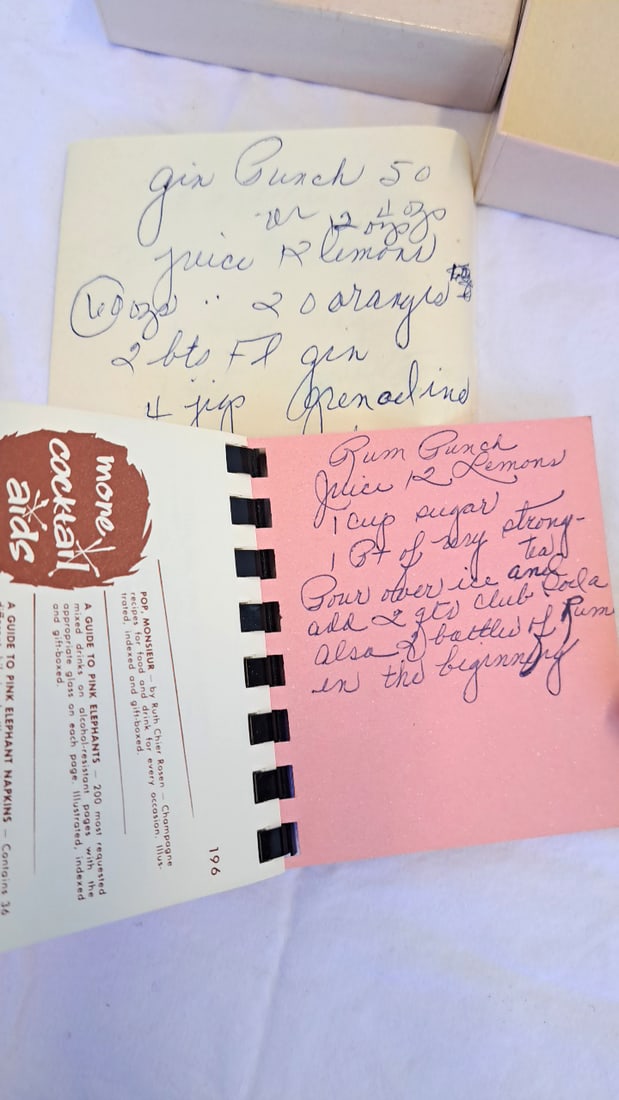 gin Punch 50
or 12 4 ozs
ozs
juice 12 lemons
60 ozs " 20 oranges
2 bts Fl gin
4 jigs Grenadine
Rum Punch
Juice 12 Lemons
1 cup sugar
1 Pt of very strong-
tea
Pour over ice and
add 2 qts club Soda
also 2 bottles of Rum
in the beginning
more
cocktail
aids
POP, MONSIEUR — by Ruth Chier Rosen — Champagne
recipes for food and drink for every occasion. Illus-
trated, indexed and gift-boxed.
A GUIDE TO PINK ELEPHANTS — 200 most requested
mixed drinks on alcohol-resistant pages with the
appropriate glass on each page. Illustrated, indexed
and gift-boxed.
A GUIDE TO PINK ELEPHANT NAPKINS — Contains 36
196